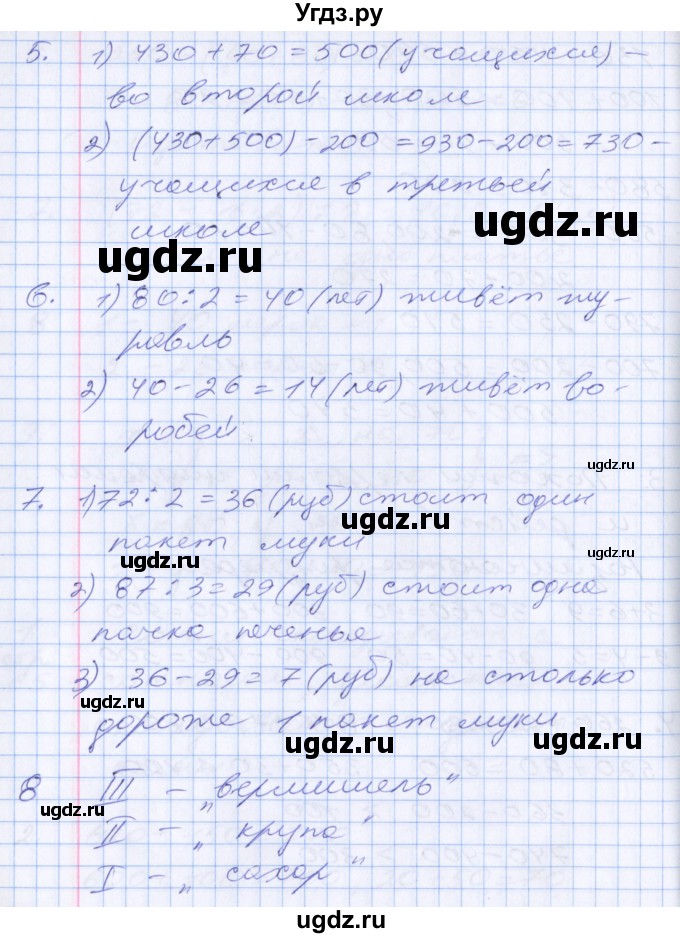 Угдз.ру
5. 1) 430 + 70 = 500 (учащихся) –
во второй школе
2) (430+500) - 200 = 930 - 200 = 730 –
учащихся в третьей
школе
ugdz.ru ugdz.ru
6. 1) 80 : 2 = 40 (лет) живёт жу-
равль
2) 40 - 26 = 14 (лет) живёт во-
робей.
ugdz.ru
7. 1) 72 : 2 = 36 (руб) стоит один
ugdz.ru
пакет муки
ugdz.ru ugdz.ru
2) 87 : 3 = 29 (руб) стоит одна
пачка печенья
3) 36 - 29 = 7 (руб) на столько
ugdz.ru
дороже 1 пакет муки
ugdz.ru
8 III – „вермишель"
ugdz.ru
II – „крупа"
ugdz.ru
I – „сахар"
ugdz.ru